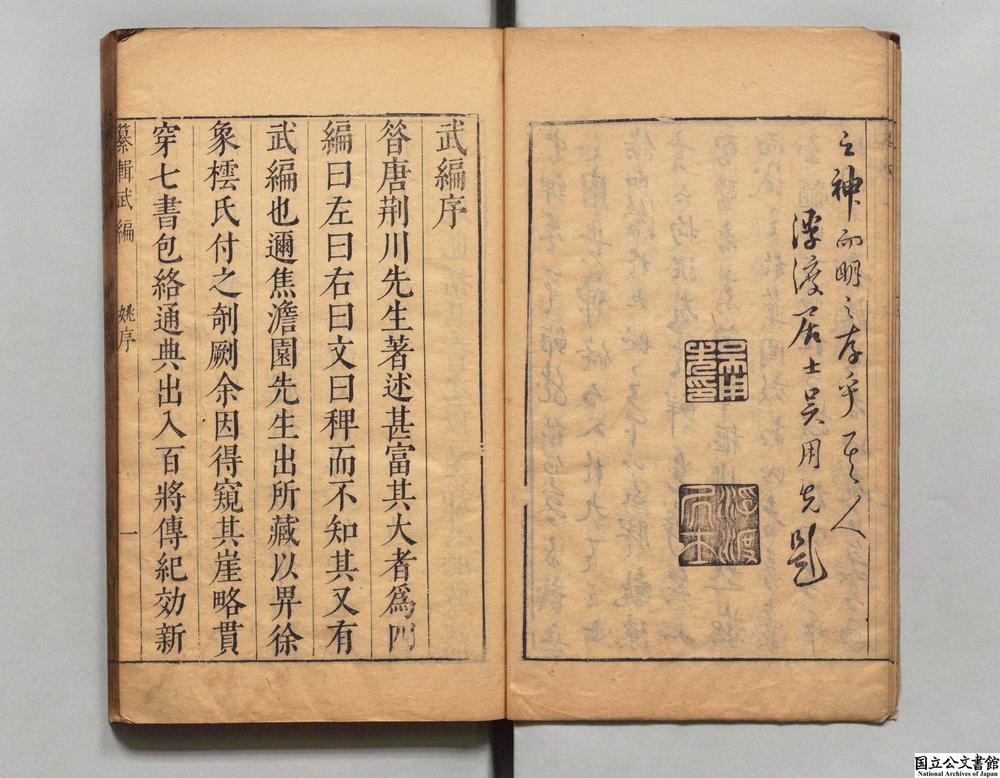 之神而明之存乎其人
浮渡居士吳用先題
吳用先印
浮渡居士
武編序
昝唐荆川先生著述甚富其大者爲四
編曰左曰右曰文曰稗而不知其又有
武編也邇焦澹園先生出所藏以畀徐
象橒氏付之剞劂余因得窺其崖略貫
穿七書包絡通典出入百將傳紀効新
纂輯武編
姚序
一
国立公文書館
National Archives of Japan